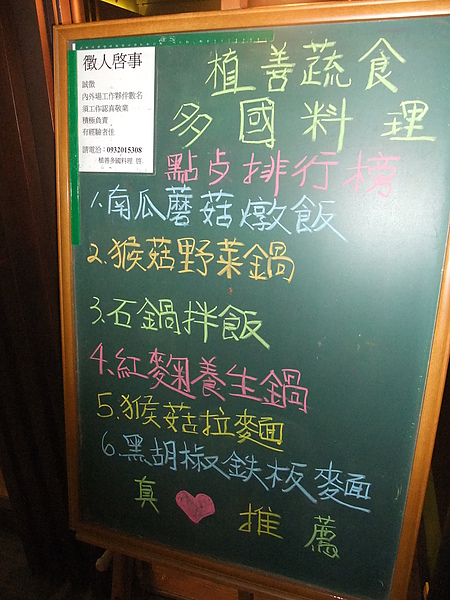 徵人啓事
誠徵
內外場工作夥伴數名
須工作認真敬業
積極負責
有經驗者佳
請電洽：0932015308
植善多國料理 啓
植善蔬食
多國料理
點步排行榜
1.南瓜蘑菇燉飯
2.猴菇野菜鍋
3.石鍋拌飯
4.紅麴養生鍋
5.猴菇拉麵
6.黑胡椒鉄板麵
真♥推薦